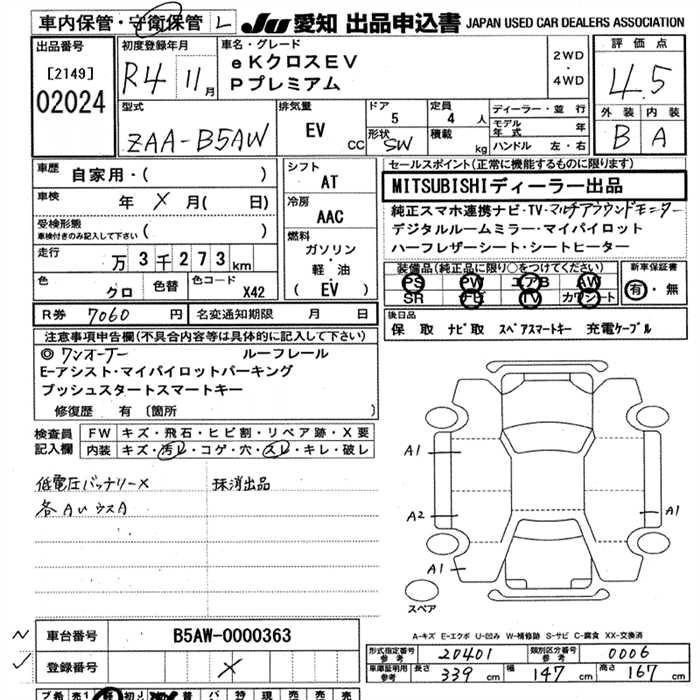 車内保管・守衛保管 L JU 愛知 出品申込書 JAPAN USED CAR DEALERS ASSOCIATION
出品番号
[2149]
02024
初度登録年月
R4 11月
車名・グレード
eKクロスEV
Pプレミアム
2WD
・
4WD
評価点
4.5
外装 内装
B A
型式
ZAA-B5AW
排気量
EV CC
ドア
5
形状
SW
定員
4 人
積載
kg
ディーラー・並行
モデル年式 年
ハンドル 左・右
車歴
自家用・( )
車検 年 X 月( 日)
受検形態
車検付きのみ記入して下さい ( )
走行
万 3千 273 km
色
クロ
色替
色コード
X42
シフト
AT
冷房
AAC
燃料
ガソリン
・
軽・油
( EV )
R券 7060 円 名変通知期限 月 日
セールスポイント(正常に機能するものに限ります)
MITSUBISHIディーラー出品
純正スマホ連携ナビ・TV・マルチアラウンドモニター
デジタルルームミラー・マイパイロット
ハーフレザーシート・シートヒーター
装備品(純正品に限り○をつけてください)
PS PW エアB AW
SR ナビ TV カワシート
新車保証書
有・無
後日品
保 取 ナビ取 スペアスマートキー 充電ケーブル
注意事項申告欄(不具合内容等は具体的に記入して下さい)
◎ ワンオーナー ルーフレール
E-アシスト・マイパイロットパーキング
プッシュスタートスマートキー
修復歴 有 〔箇所 〕
検査員記入欄
FW キズ・飛石・ヒビ割・リペア跡・X要
内装 キズ・汚レ・コゲ・穴・スレ・キレ・破レ
低電圧バッテリーX 抹消出品
各AいウスA
A1
A2
A1
A1
スペア
A-キズ E-エクボ U-凹み W-補修跡 S-サビ C-腐食 XX-交換済
車台番号 B5AW-0000363
登録番号 X
形式指定番号 参考 20401 類別区分番号 参考 0006
車庫証明用 参考 長さ 339 cm 幅 147 cm 高さ 167 cm